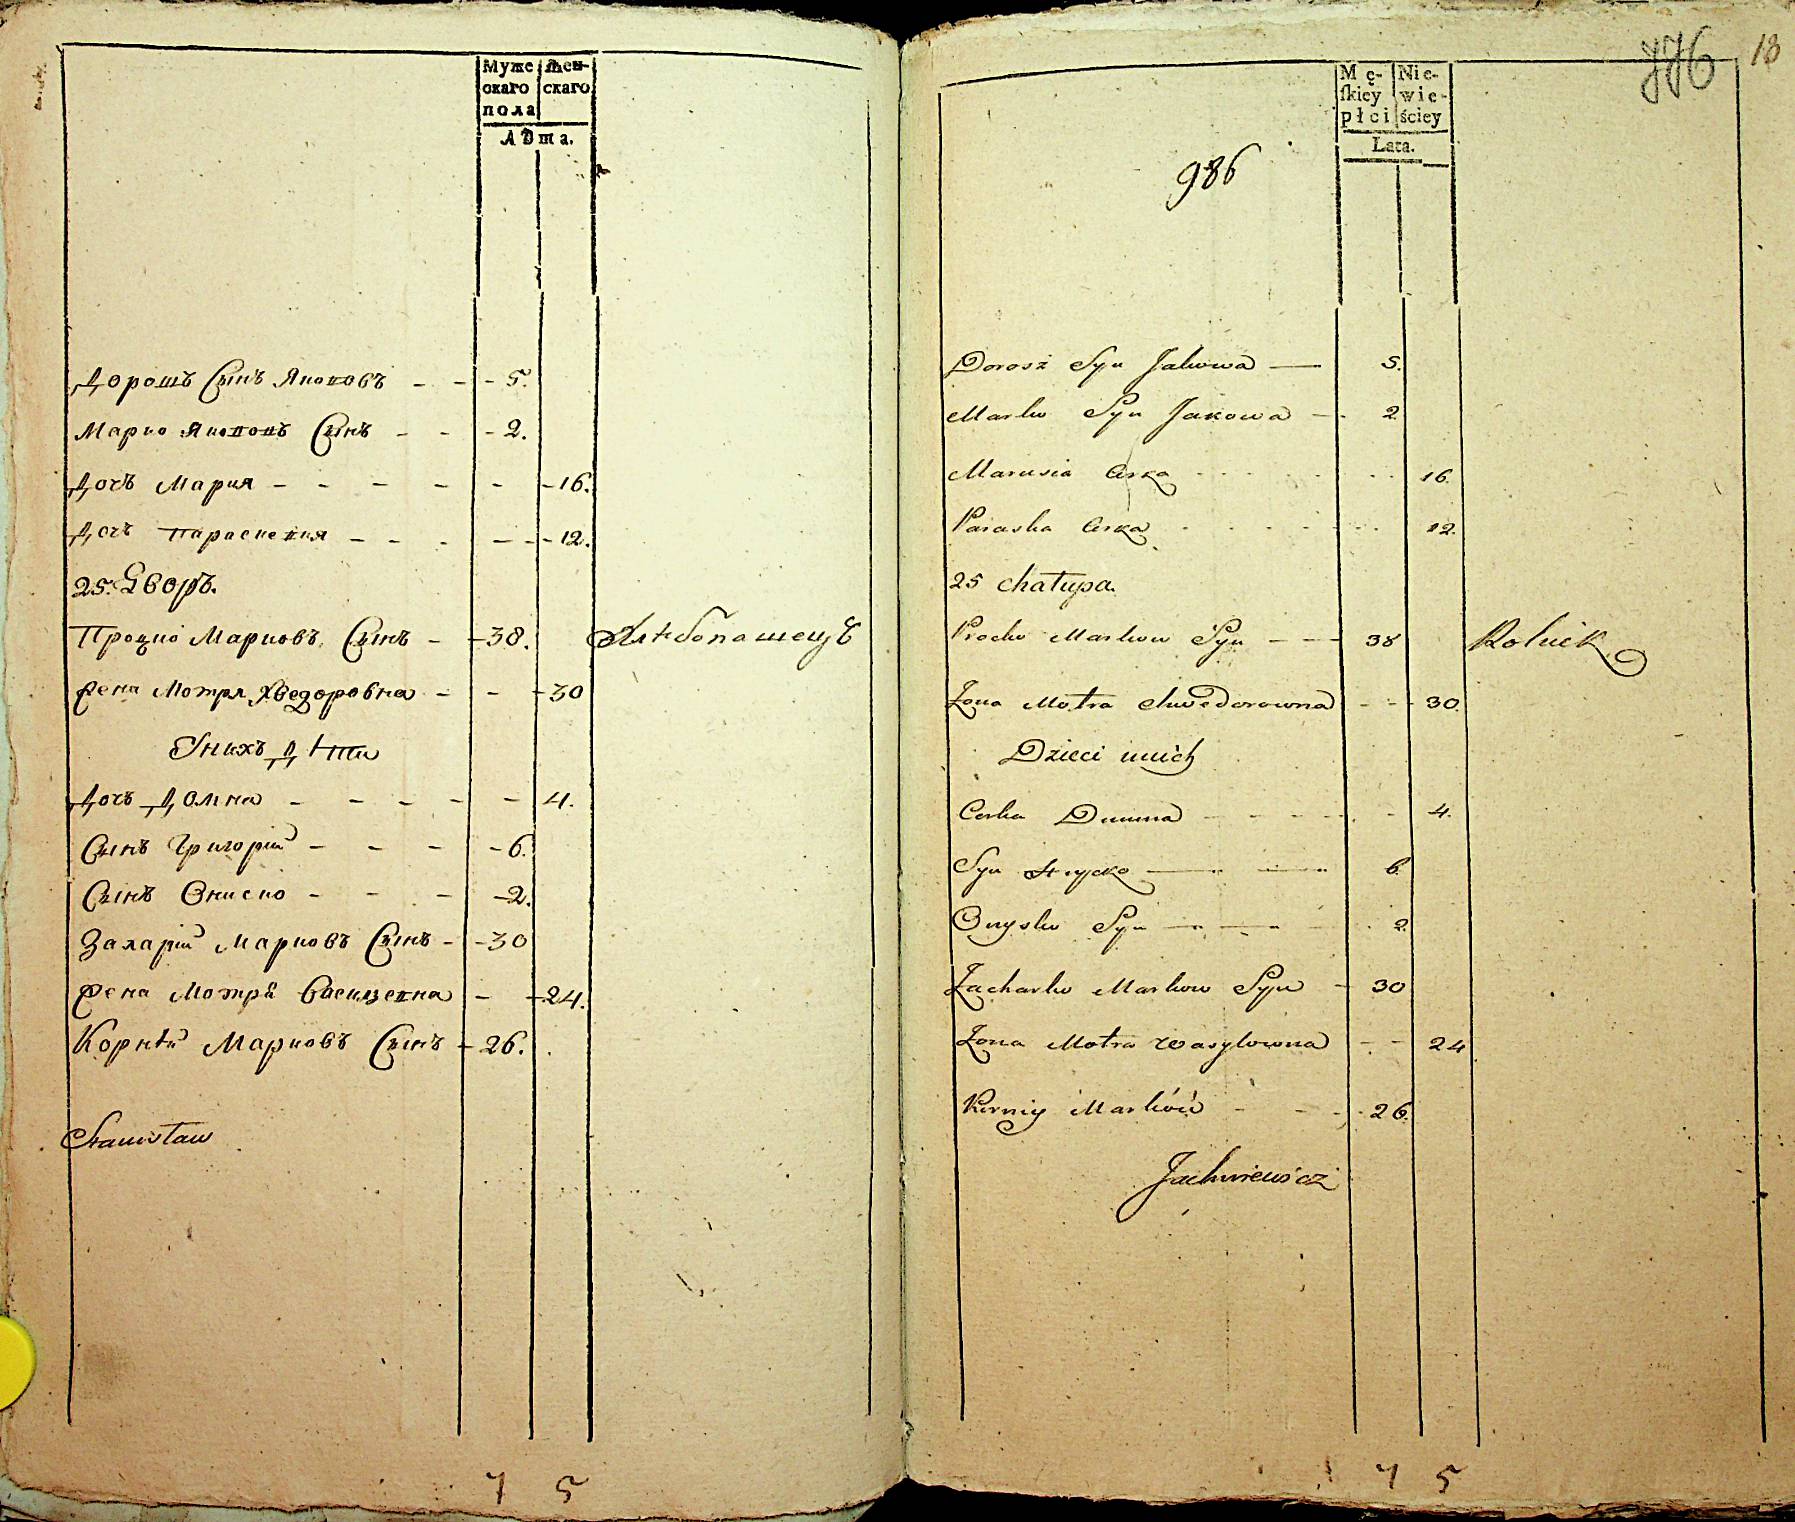 Муже
скаго
пола
Жен-
скаго
Лѣта.
Дорошъ Сынъ Якововъ - - - 5.
Марко Якововъ Сынъ - - - 2.
Дочъ Мария - - - - - - 16.
Дочъ Параскевия - - - - - - 12.
25. Дворъ.
Процко Марковъ Сынъ - - 38. Хлѣбопашецъ
Жена Мотря Хведоровна - - - 30
Унихъ Дѣти
Дочъ Домна - - - - - 4.
Сынъ Григорій - - - - 6.
Сынъ Ониско - - - - 2.
Захарій Марковъ Сынъ - - 30
Жена Мотря Василевна - - 24.
Корнѣй Марковъ Сынъ - 26.
Stanisław
7 5
776 18
Mę-
ſkiey
płci
Nie-
wie-
ściey
Lata.
986
Dorosz Syn Jakowa — 5.
Marko Syn Jakowa - - 2
Marusia Curka - - - - - 16.
Paraska Curka - - - - - 12.
25 Chałupa.
Procko Markow Syn - - - 38 Rolnik
Żona Motra Chwedorowna - - - 30.
Dzieci unich
Corka Dumna - - - - - 4.
Syn Hrycko — — 6.
Onysko Syn - - - 2.
Zacharko Markow Syn - 30
Żona Motra Wasylowna - - 24
Korniy Marków - - - 26.
Jachniewicz
7 5